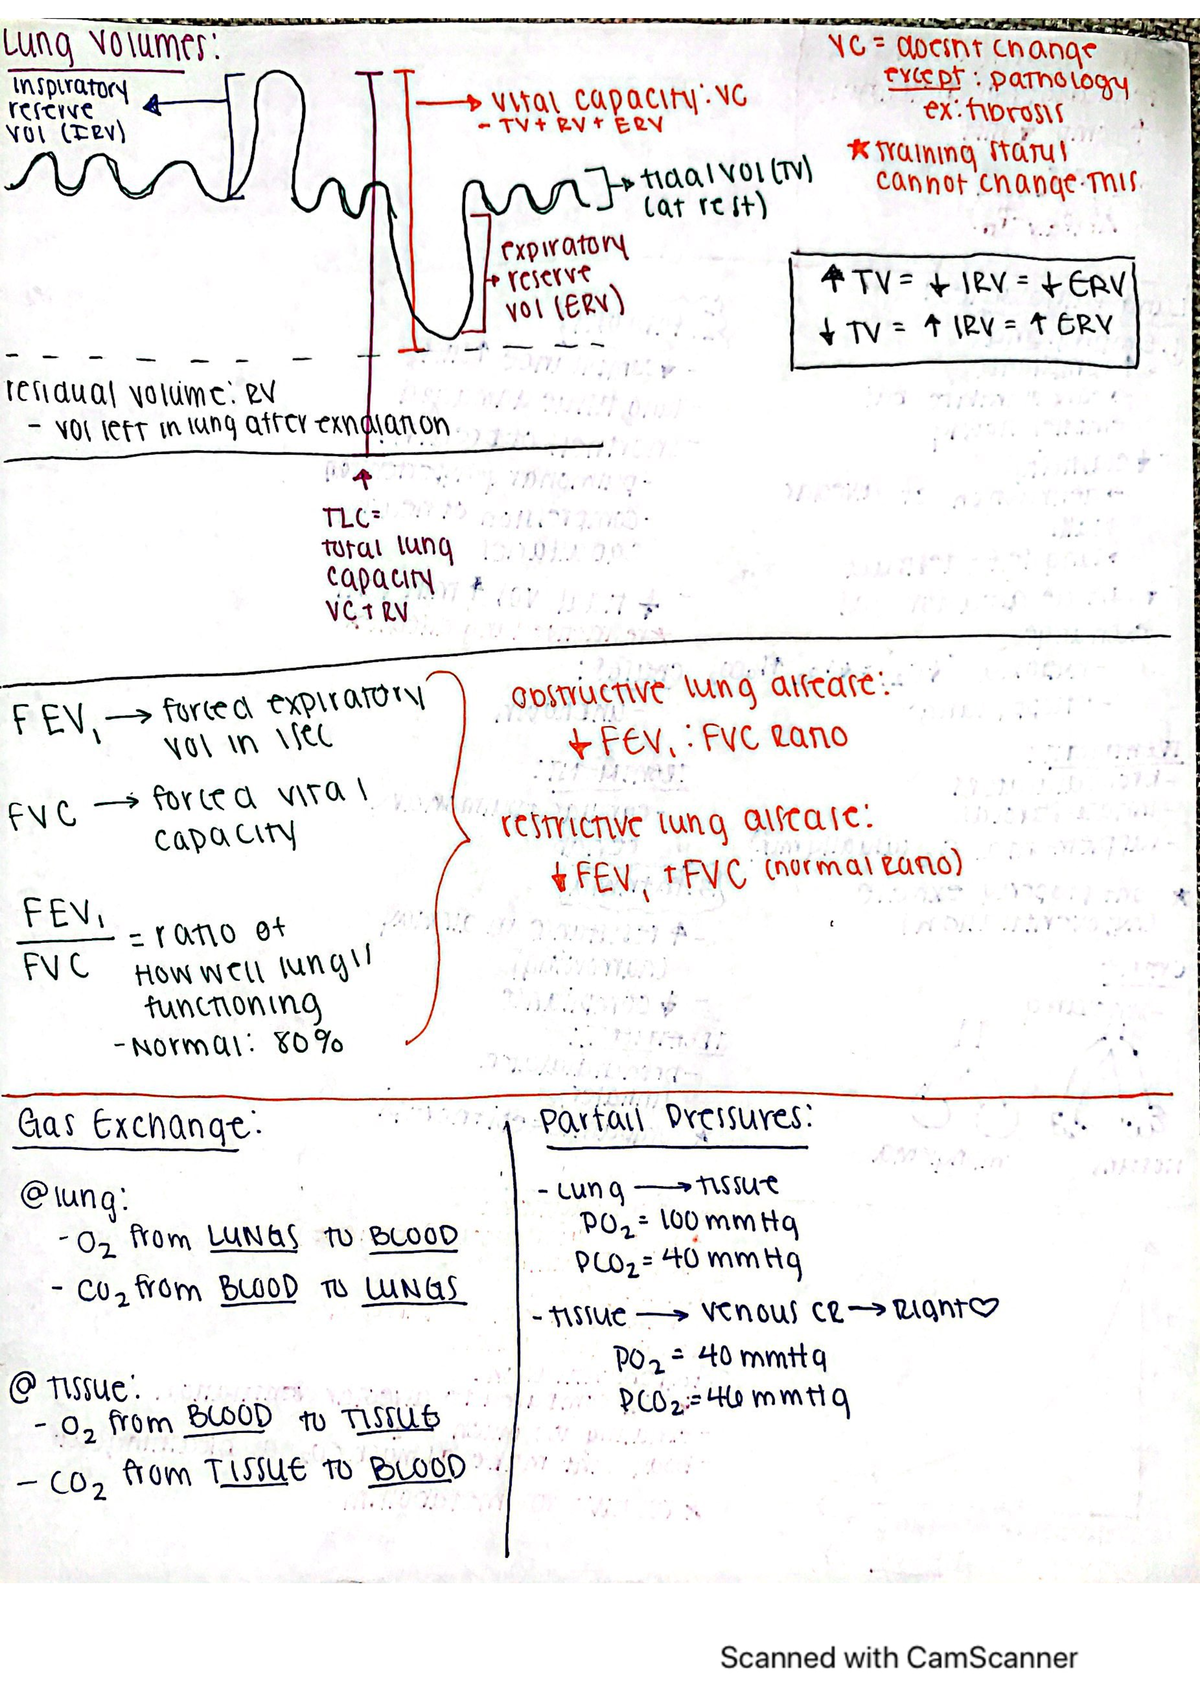 Lung Volumes:
Inspiratory
reserve
vol (IRV)
vital capacity: VC
- TV + RV + ERV
VC = doesnt change
except: pathology
ex: fibrosis
★ training status
cannot change this
tidal vol (TV)
(at rest)
expiratory
reserve
vol (ERV)
↑ TV = ↓ IRV = ↓ ERV
↓ TV = ↑ IRV = ↑ ERV
residual volume: RV
- vol left in lung after exhalation
TLC =
total lung
capacity
VC + RV
FEV₁ → forced expiratory
vol in 1 sec
FVC → forced vital
capacity
FEV₁
FVC
= ratio of
How well lungs
functioning
- Normal: 80%
obstructive lung disease:
↓ FEV₁ : FVC Ratio
restrictive lung disease:
↓ FEV₁ + FVC (normal Ratio)
Gas Exchange:
@ lung:
- O₂ from LUNGS to BLOOD
- CO₂ from BLOOD TO LUNGS
@ tissue:
- O₂ from BLOOD to TISSUE
- CO₂ from TISSUE TO BLOOD
Partail Pressures:
- Lung → tissue
PO₂ = 100 mmHg
PCO₂ = 40 mmHg
- tissue → venous CR → Right ♡
PO₂ = 40 mmHg
PCO₂ = 46 mmHg
Scanned with CamScanner